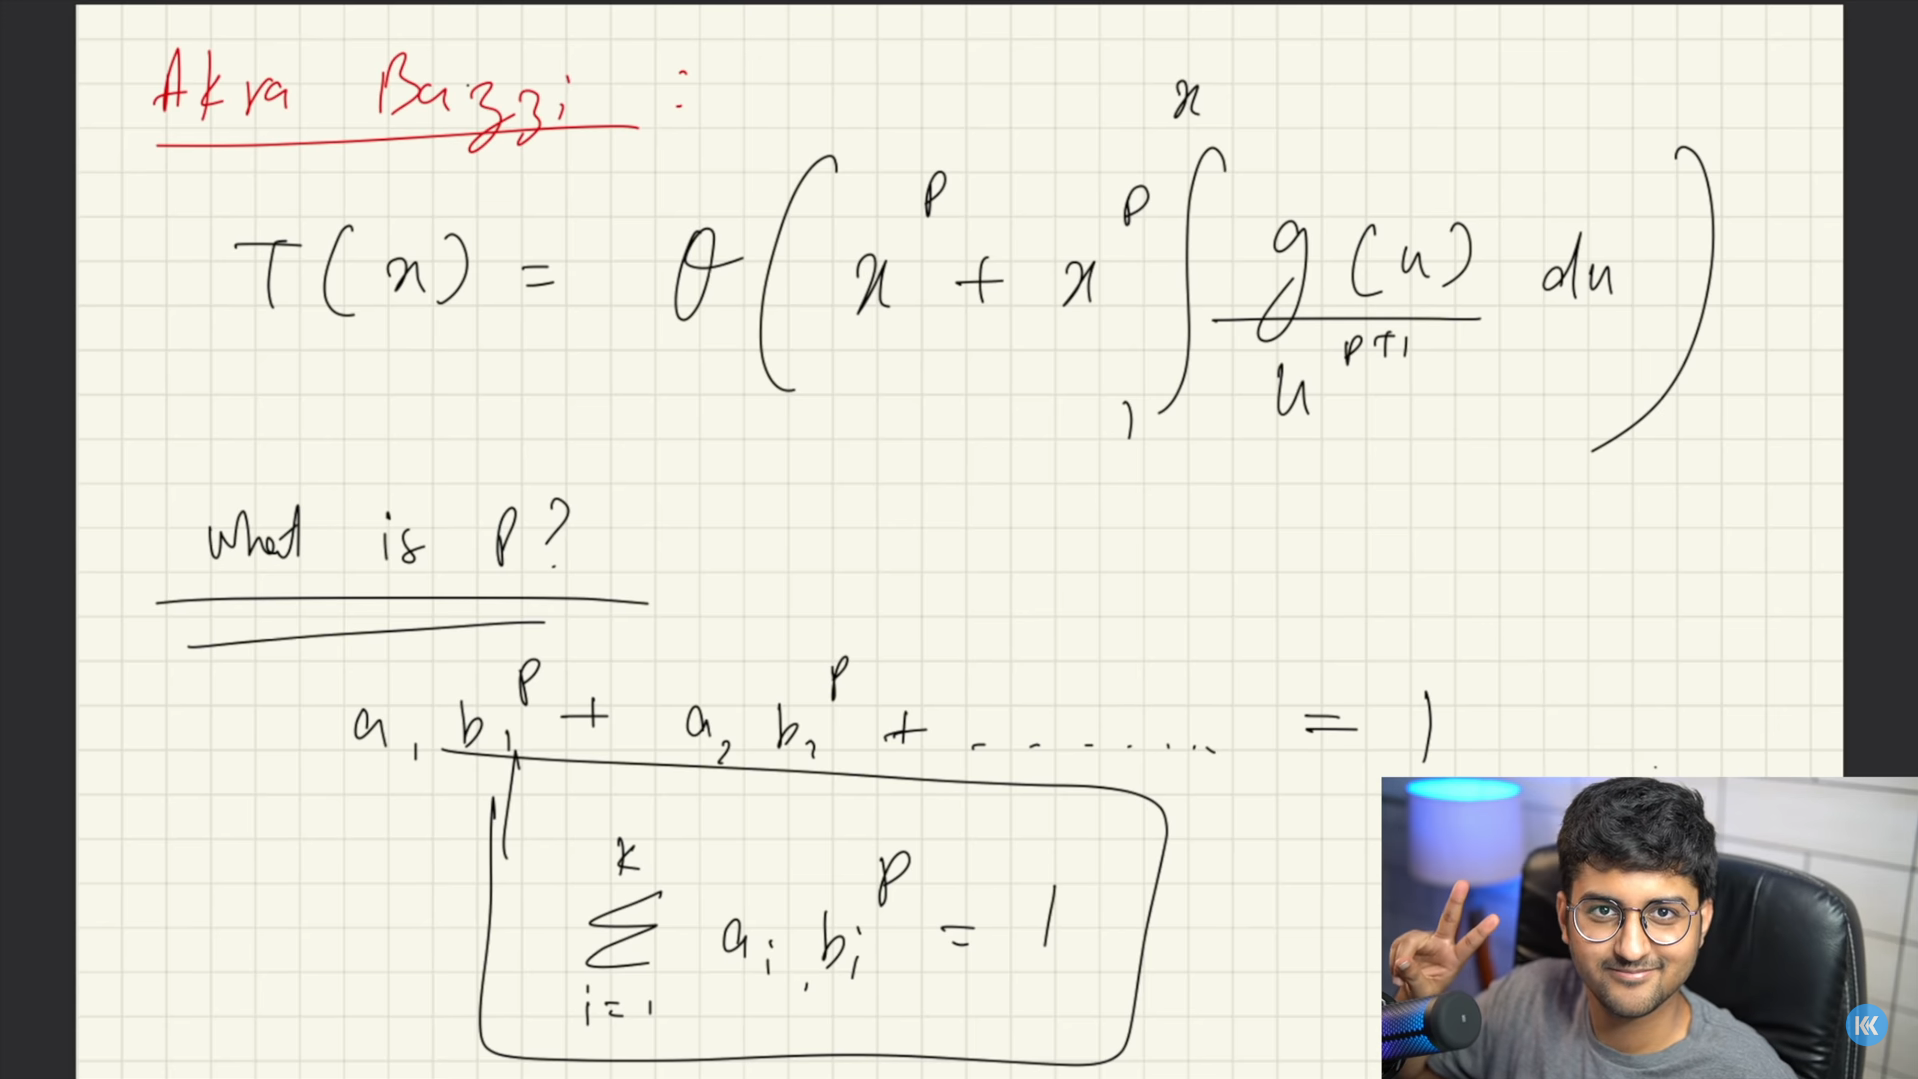 Akra Bazzi :
T(x) = θ( x^p + x^p ∫_1^x g(u)/u^(p+1) du )
What is P?
a_1 b_1^p + a_2 b_2^p + ........ = 1
∑_{i=1}^{k} a_i b_i^p = 1
KK